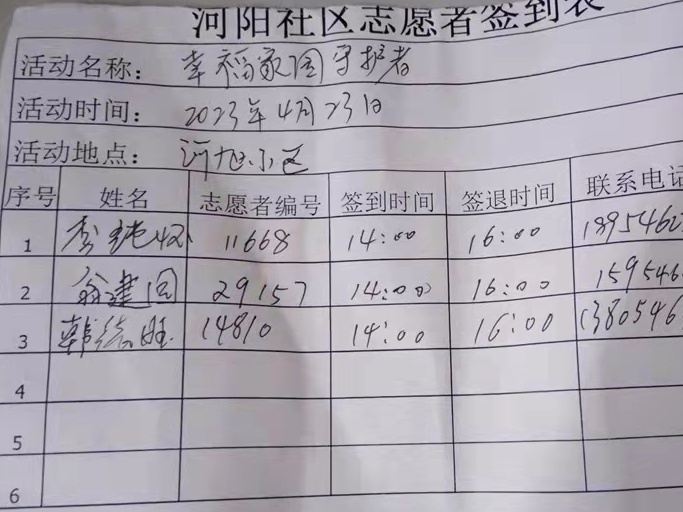 河阳社区志愿者签到表
活动名称: 幸福家园守护者
活动时间: 2023年4月23日
活动地点: 小区
序号 姓名 志愿者编号 签到时间 签退时间 联系电话
1 李 11668 14:00 16:00 1895462
2 翁建国 29157 14:00 16:00 159546
3 韩德胜 14810 14:00 16:00 1380546
4
5
6